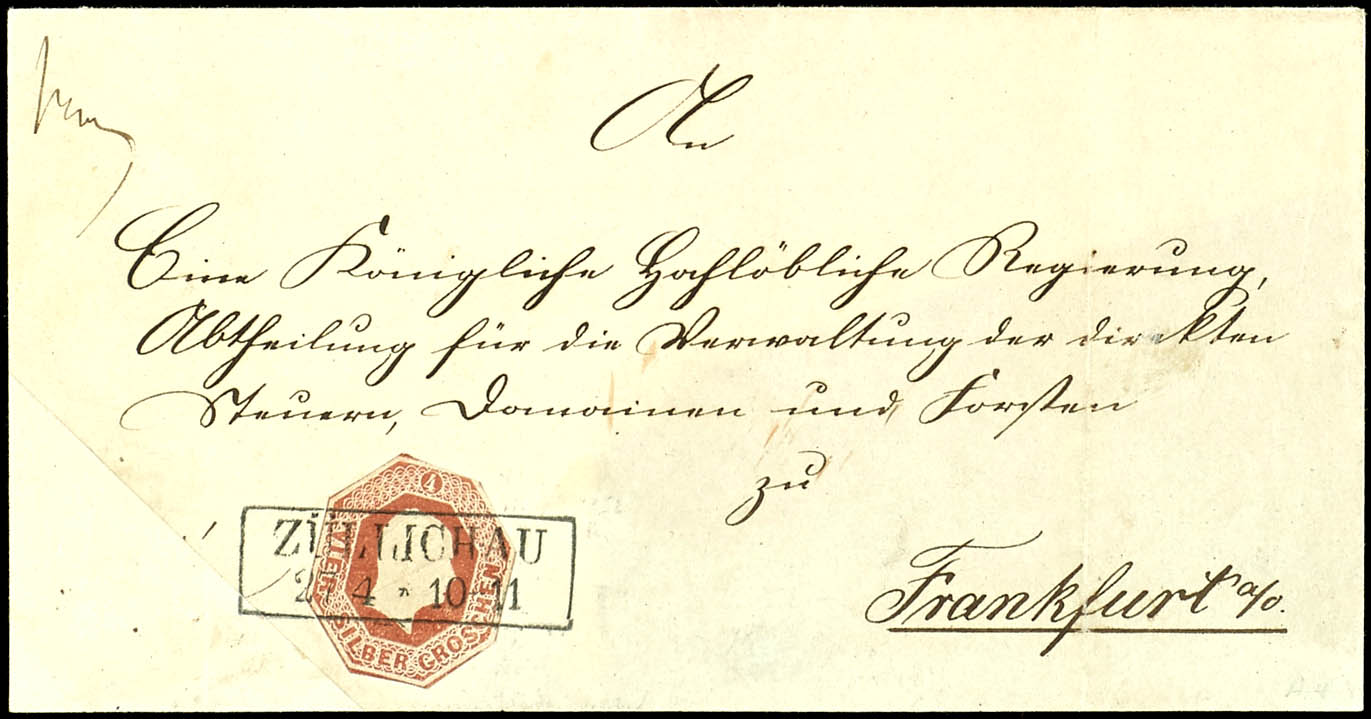 An
Eine Königliche Hochlöbliche Regierung,
Abtheilung für die Verwaltung der direkten
Steuern, Domainen und Forsten
zu
Frankfurt a/o.
4
VIER SILBER GROSCHEN
ZÜLLICHAU
4 * 10-11